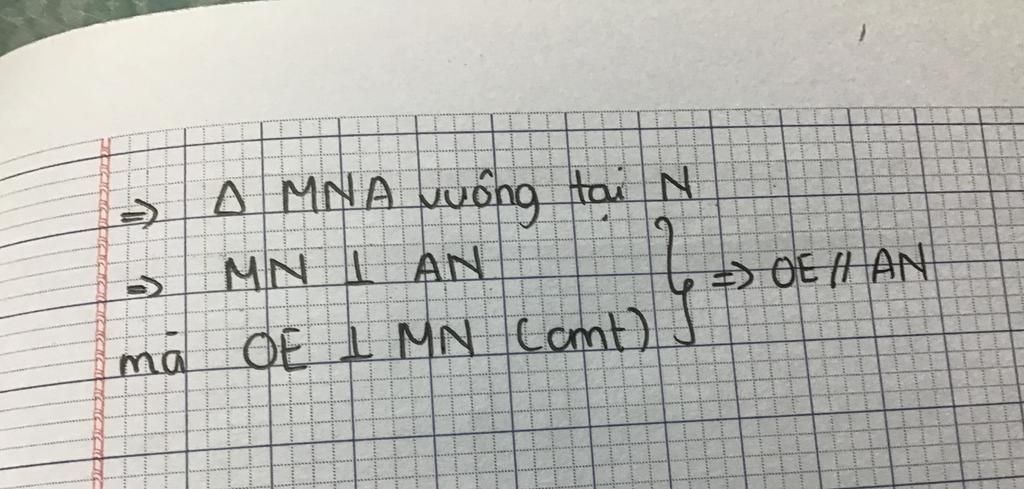 => Δ MNA vuông tại N
=> MN ⊥ AN
mà OE ⊥ MN (cmt) } => OE // AN